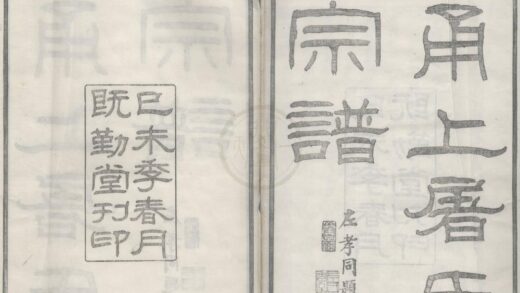 甬上屠氏
宗譜
左孝同題
已未季春月
既勤堂刊印